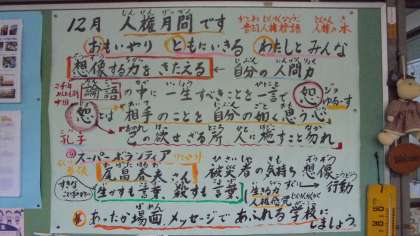 12月 人権月間です
おもいやり ともにいきる わたしとみんな
想像する力をきたえる ← 自分の人間力
論語の中に一生すべきことを一言で 恕
ゆるす。
恕とは相手のことを自分の如く思う心
孔子
己の欲せざる所 人に施すこと勿れ
スーパーボランティア
尾畠春夫さん 被災者の気持ち 想像
行動
生かすも言葉 殺すも言葉
あったか場面 メッセージであふれる学校にしましょう。